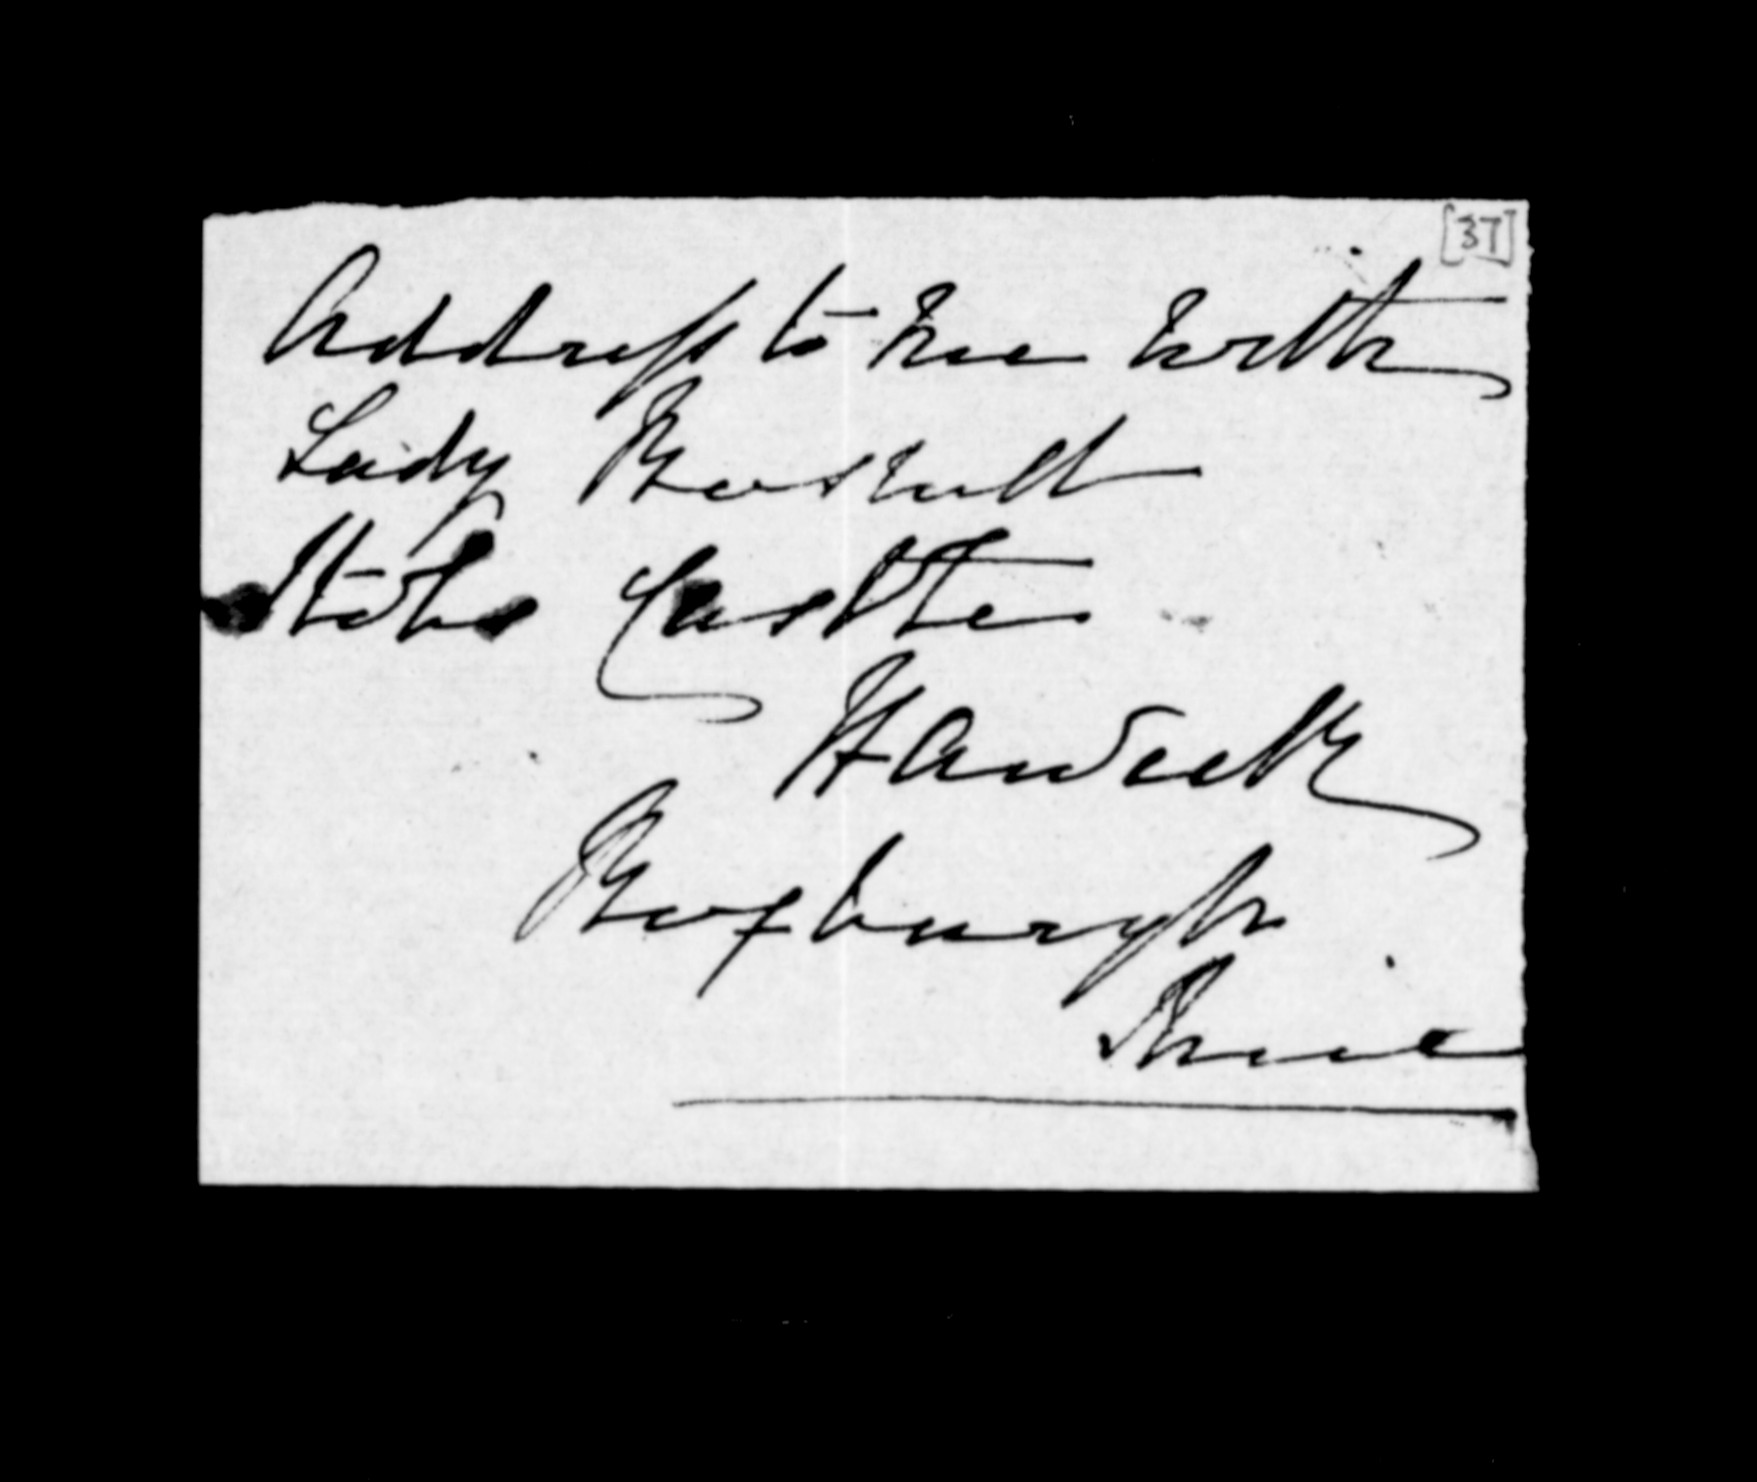 [37]
Address to me with
Lady
Stobs Castle
Hawick
Roxburgh
Shire